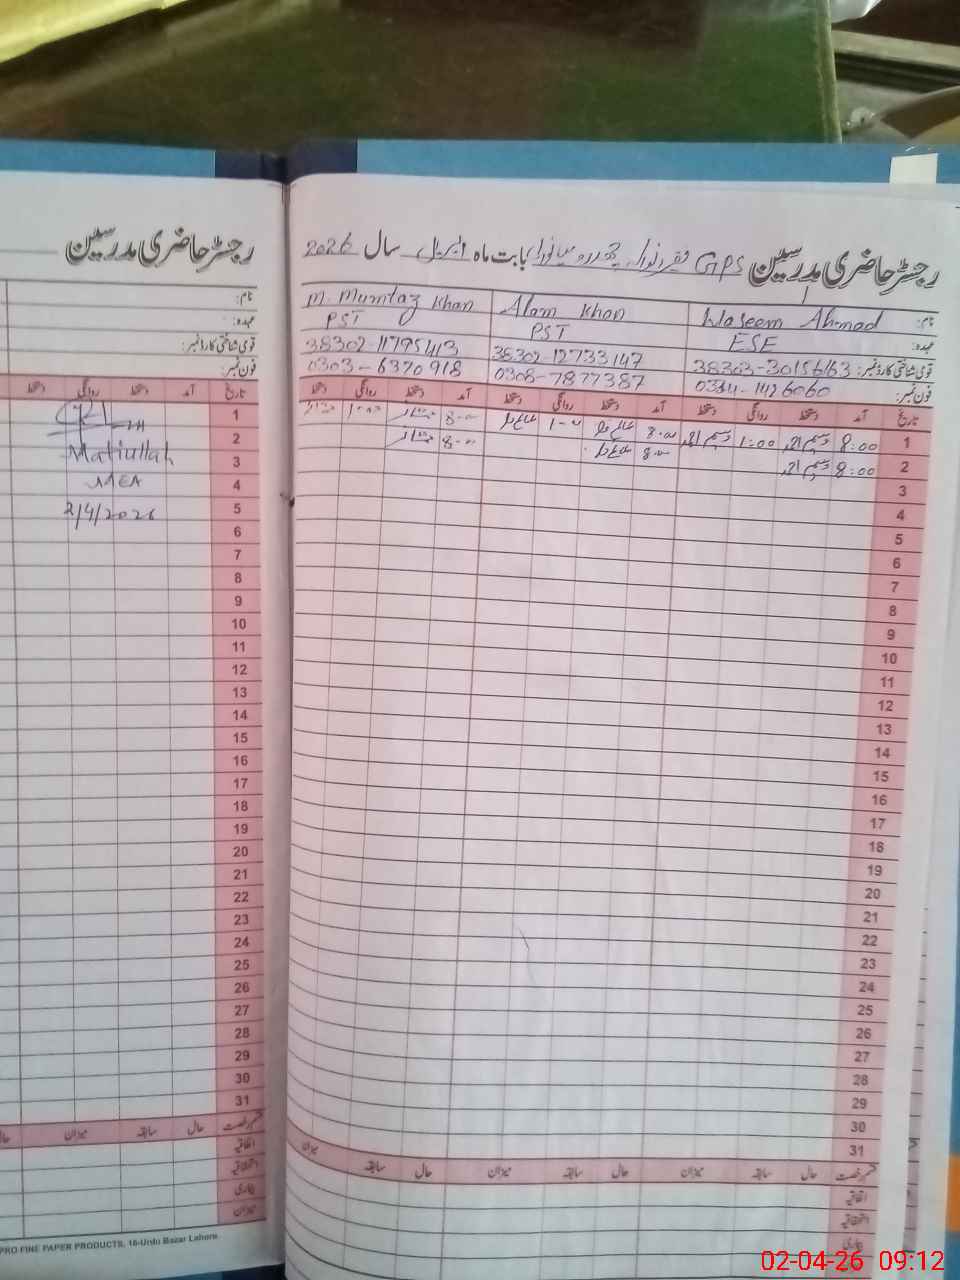 رجسٹر حاضری مدرسین GPS بابت ماہ اپریل سال 2026
نام: Waseem Ahmad Alam Khan M. Mumtaz Khan
عہدہ: ESE PST PST
قومی شناختی کارڈ نمبر: 38303-30156163 38302-12733147 38302-11795413
فون نمبر: 0308-7877387 0303-6370918
تاریخ آمد دستخط روانگی دستخط آمد دستخط روانگی دستخط آمد دستخط روانگی دستخط
1 8:00 وسیم احمد 1:00 وسیم احمد 8:00 1-00 8:00 ممتاز 1:00 ممتاز
2 8:00 وسیم احمد 8:00 8:00 ممتاز
3
4
5
6
7
8
9
10
11
12
13
14
15
16
17
18
19
20
21
22
23
24
25
26
27
28
29
30
31
قسم رخصت حال سابقہ میزان حال سابقہ میزان حال سابقہ میزان
اتفاقیہ
استحقاقیہ
بیماری
رجسٹر حاضری مدرسین
نام:
عہدہ:
قومی شناختی کارڈ نمبر:
فون نمبر:
تاریخ آمد دستخط روانگی دستخط
1
2 Matiullah
3
4 MEA
5 2/4/2026
6
7
8
9
10
11
12
13
14
15
16
17
18
19
20
21
22
23
24
25
26
27
28
29
30
31
قسم رخصت حال سابقہ میزان حال
اتفاقیہ
استحقاقیہ
بیماری
میزان
PRO FINE PAPER PRODUCTS, 16-Urdu Bazar Lahore.
02-04-26 09:12